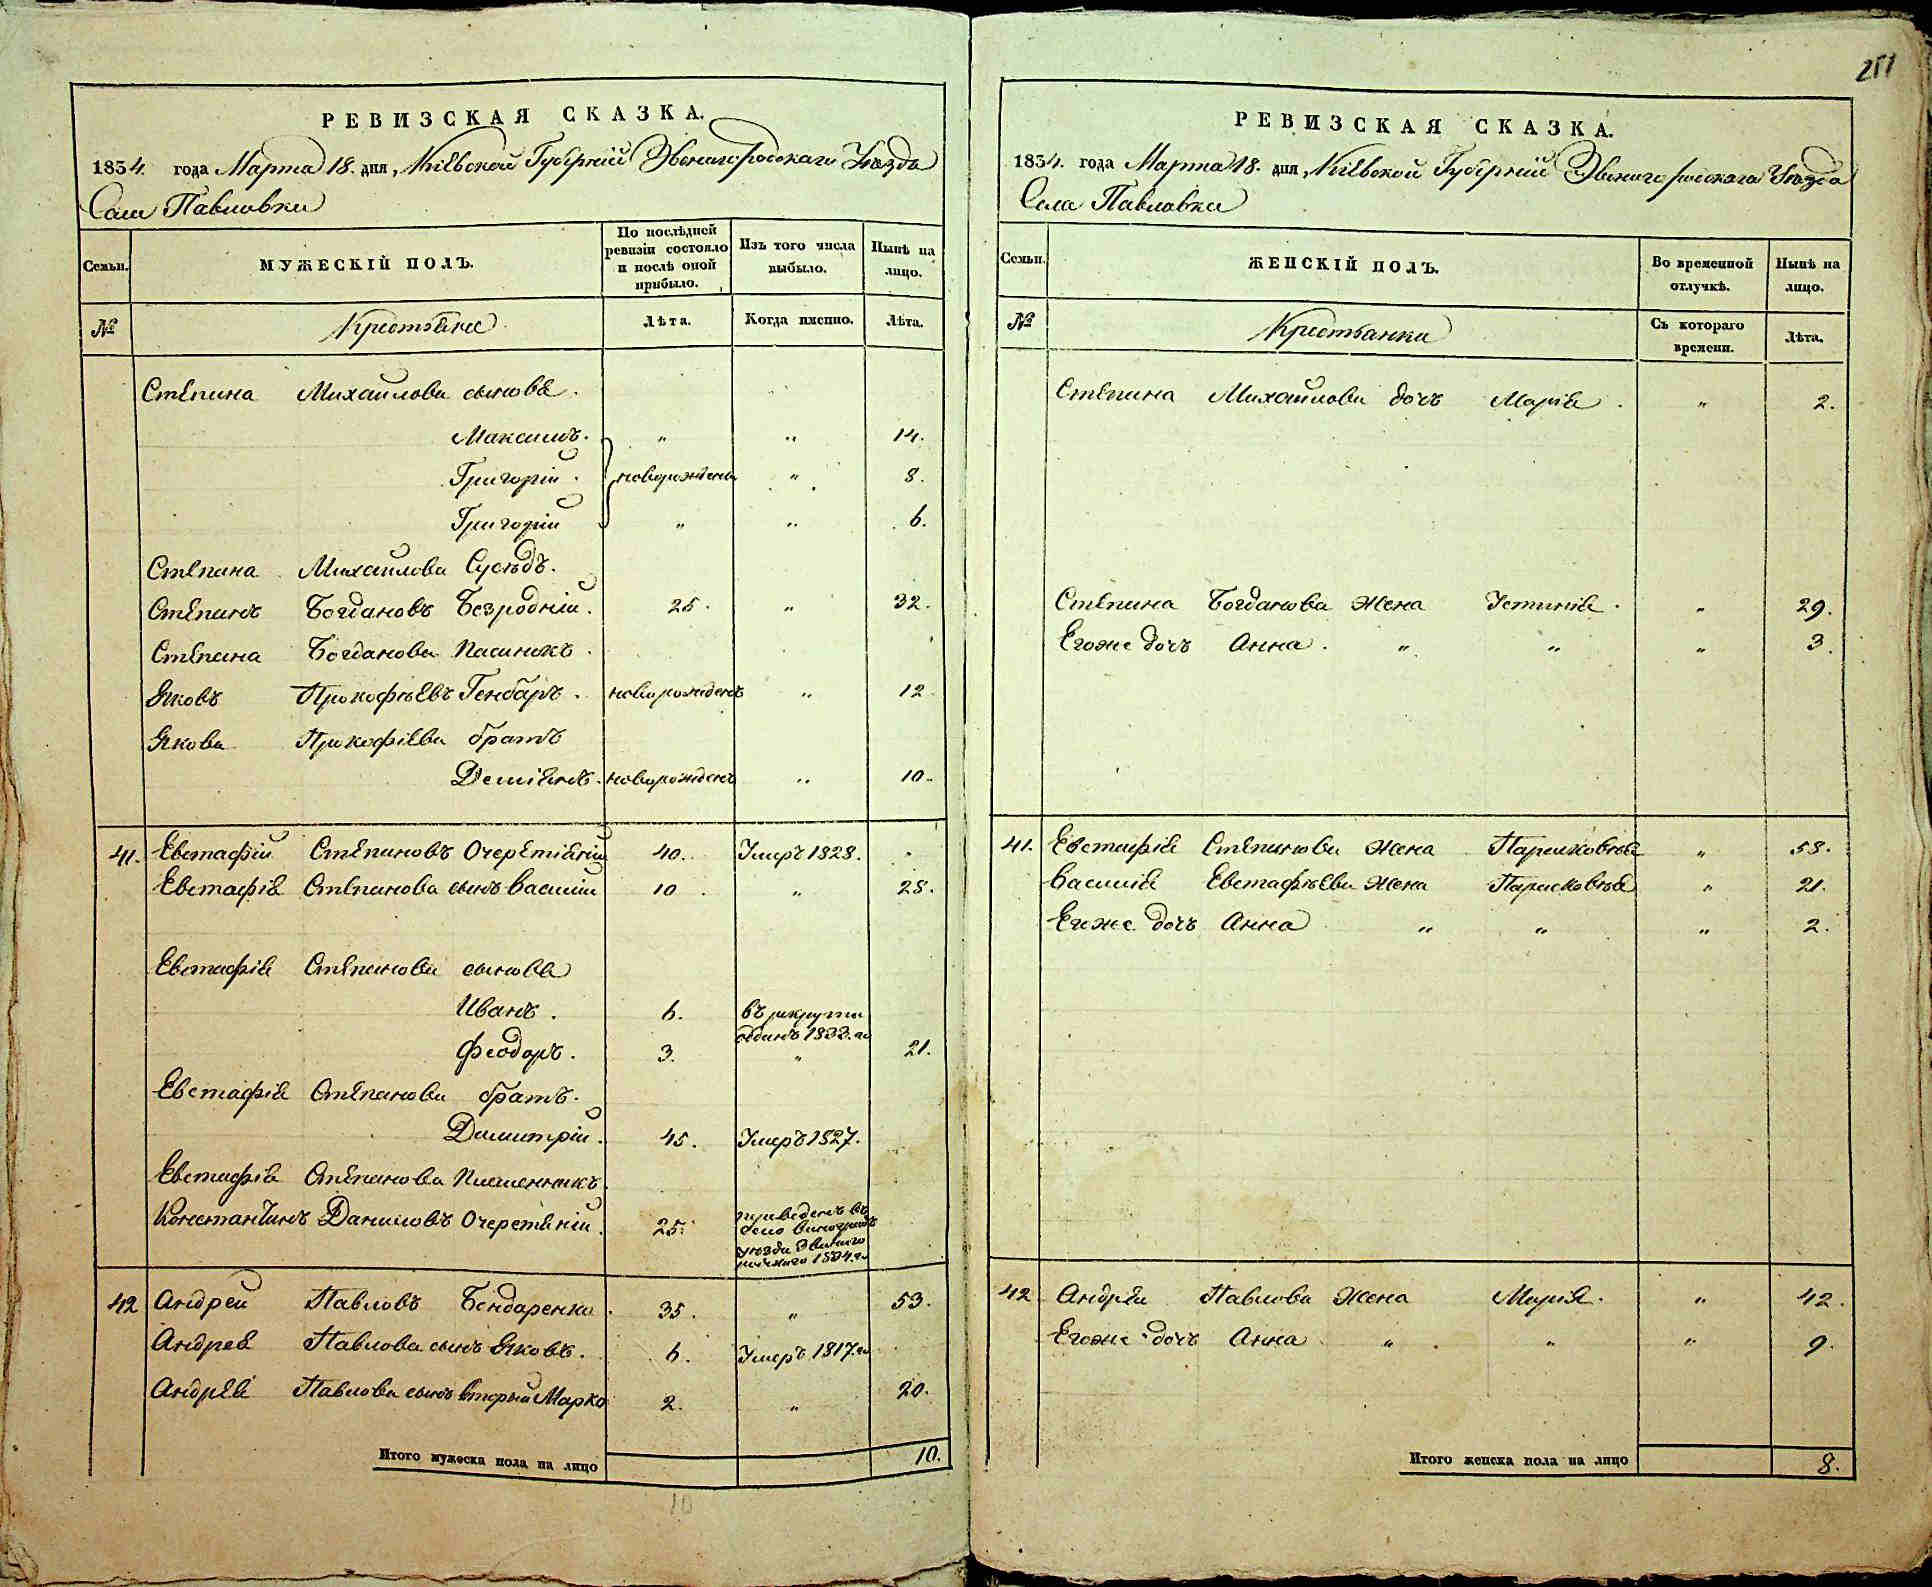 251
РЕВИЗСКАЯ СКАЗКА.
1834. года Марта 18. дня, Кіевской Губерніи Звенигородскаго Уезда
Села Павловки
Семьи.
МУЖЕСКІЙ ПОЛЪ.
По послѣдней ревизіи состояло и послѣ оной прибыло.
Изъ того числа выбыло.
Нынѣ на лицо.
№
Крестьяне
Лѣта.
Когда имянно.
Лѣта.
Степана Михайлова сыновья.
Максимъ. " " 14.
Григорій. новорожденны " 8.
Григорій " " 6.
Степана Михайлова Сусѣдъ.
Степанъ Богдановъ Безродній. 25. " 32.
Степана Богданова Пасинокъ.
Яковъ Прокофьевъ Гендаръ. новорожденъ " 12.
Якова Прокофіева братъ
Деміянъ. новорожденъ " 10.
41. Евстафій Степановъ Очеретяній 40. Умеръ 1828.
Евстафія Степанова сынъ Василій 10. " 28.
Евстафія Степанова сыновья
Иванъ. 6. въ рекруты
отданъ 1833. го
Феодоръ. 3. " 21.
Евстафія Степанова братъ.
Димитрій. 45. Умеръ 1827.
Евстафія Степанова Племенникъ.
Константинъ Даниловъ Очеретяній. 25.
42 Андрей Павловъ Бондаренко. 35. " 53.
Андрея Павлова сынъ Яковъ. 6. Умеръ 1817. го
Андрея Павлова сынъ вторый Марко 2. " 20.
Итого мужеска пола на лицо 10.
10
РЕВИЗСКАЯ СКАЗКА.
1834. года Марта 18. дня, Кіевской Губерніи Звенигородскаго Уезда
Села Павловки
Семьи.
ЖЕНСКІЙ ПОЛЪ.
Во временной отлучкѣ.
Нынѣ на лицо.
№
Крестьянки
Съ котораго времени.
Лѣта.
Степана Михайлова дочь Марія. " 2.
Степана Богданова Жена Устинія. " 29.
Егоже дочь Анна. " " " 3.
41. Евстафія Степанова Жена Парасковія " 58.
Василія Евстафьева Жена Парасковія " 21.
Егоже дочь Анна " " " 2.
42. Андрея Павлова Жена Марія. " 42.
Егоже дочь Анна " " " 9.
Итого женска пола на лицо 8.